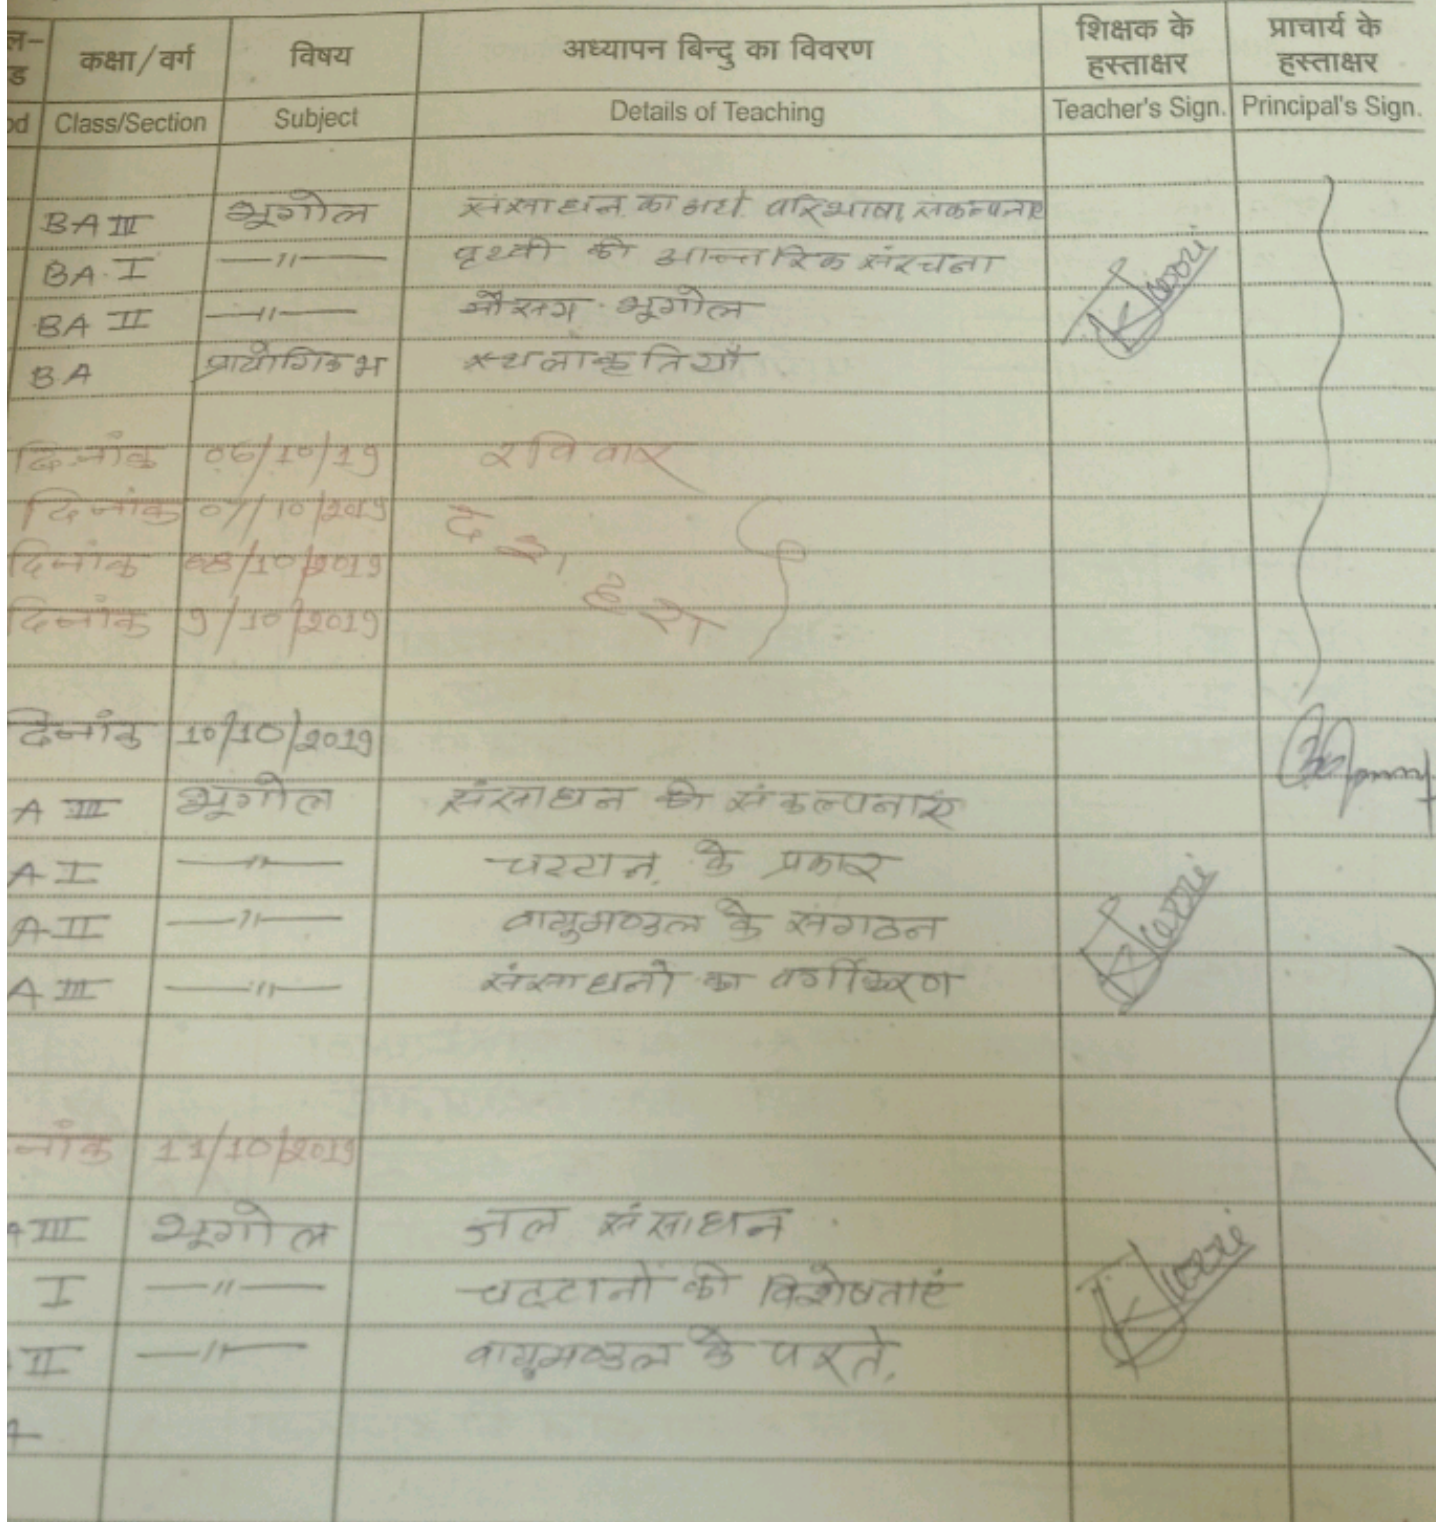 ल- कक्षा/वर्ग विषय अध्यापन बिन्दु का विवरण शिक्षक के हस्ताक्षर प्राचार्य के हस्ताक्षर
ड
od Class/Section Subject Details of Teaching Teacher's Sign. Principal's Sign.
BA III भूगोल संसाधन का अर्थ परिभाषा संकल्पनाए
BA. I —"— पृथ्वी की आन्तरिक संरचना
BA II —"— मौसम भूगोल
BA प्रायोगिक भू स्थलाकृतियाँ
दिनांक 06/10/19 रविवार
दिनांक 07/10/2019 दशहरा
दिनांक 08/10/2019
दिनांक 9/10/2019
दिनांक 10/10/2019
A III भूगोल संसाधन की संकल्पनाएं
A I —"— चट्टान के प्रकार
A II —"— वायुमण्डल के संगठन
A III —"— संसाधनो का वर्गीकरण
नांक 11/10/2019
A III भूगोल जल संसाधन
I —"— चट्टानों की विशेषताएं
II —"— वायुमण्डल के परते,